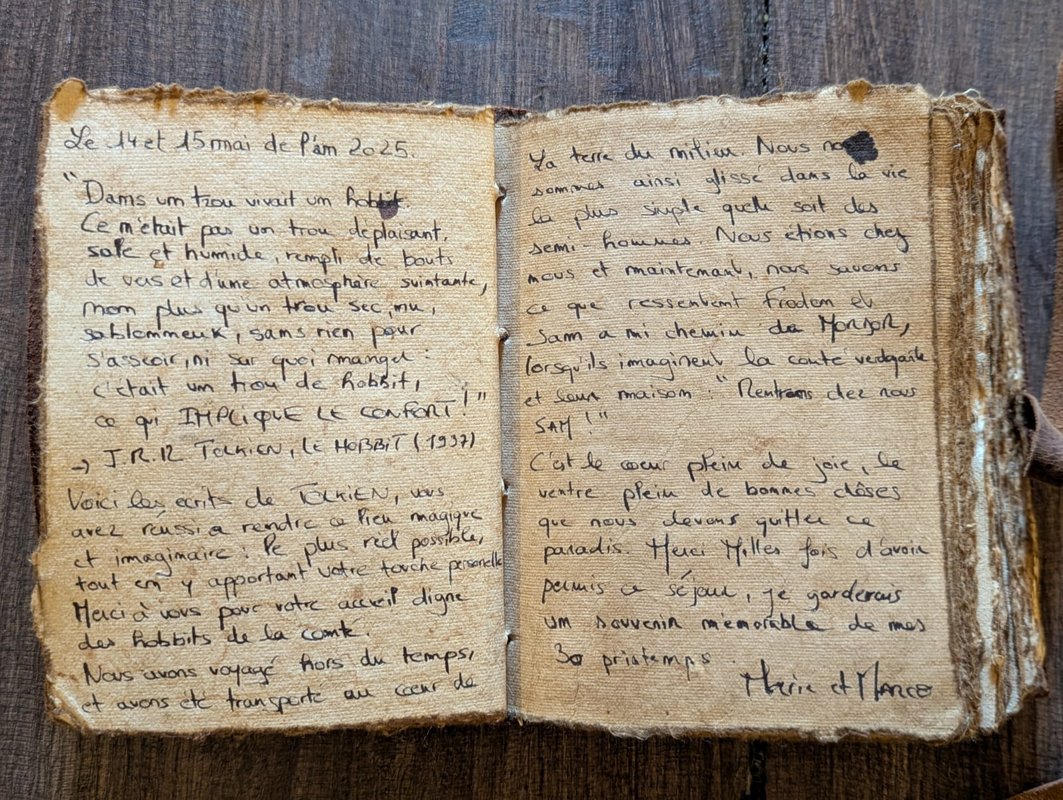 Le 14 et 15 mai de l'an 2025.
"Dans un trou vivait un hobbit.
Ce n'était pas un trou déplaisant,
sale et humide, rempli de bouts
de vers et d'une atmosphère suintante,
non plus qu'un trou sec, nu,
sablonneux, sans rien pour
s'asseoir, ni sur quoi manger :
c'était un trou de hobbit,
ce qi IMPLIQUE LE CONFORT !"
→ J.R.R. TOLKIEN, LE HOBBIT (1937)
Voici les écrits de TOLKIEN, vous
avez réussi a rendre ce lieu magique
et imaginaire : le plus réel possible,
tout en y apportant votre touche personelle
Merci à vous pour votre accueil digne
des hobbits de la comté.
Nous avons voyagé hors du temps,
et avons été transporté au cœur de
La terre du milieu. Nous
sommes ainsi glissé dans la vie
la plus simple quelle soit des
semi-hommes. Nous étions chez
nous et maintenant, nous savons
ce que ressentent Frodon et
Sam a mi chemin du MORDOR,
lorsqu'ils imaginent la conté verdoyante
et leur maison : "Rentrons chez nous
SAM !"
C'est le cœur plein de joie, le
ventre plein de bonnes choses
que nous devons quitter ce
paradis. Merci Milles fois d'avoir
permis ce séjour, je garderais
un souvenir mémorable de mes
30 printemps.
Marie et